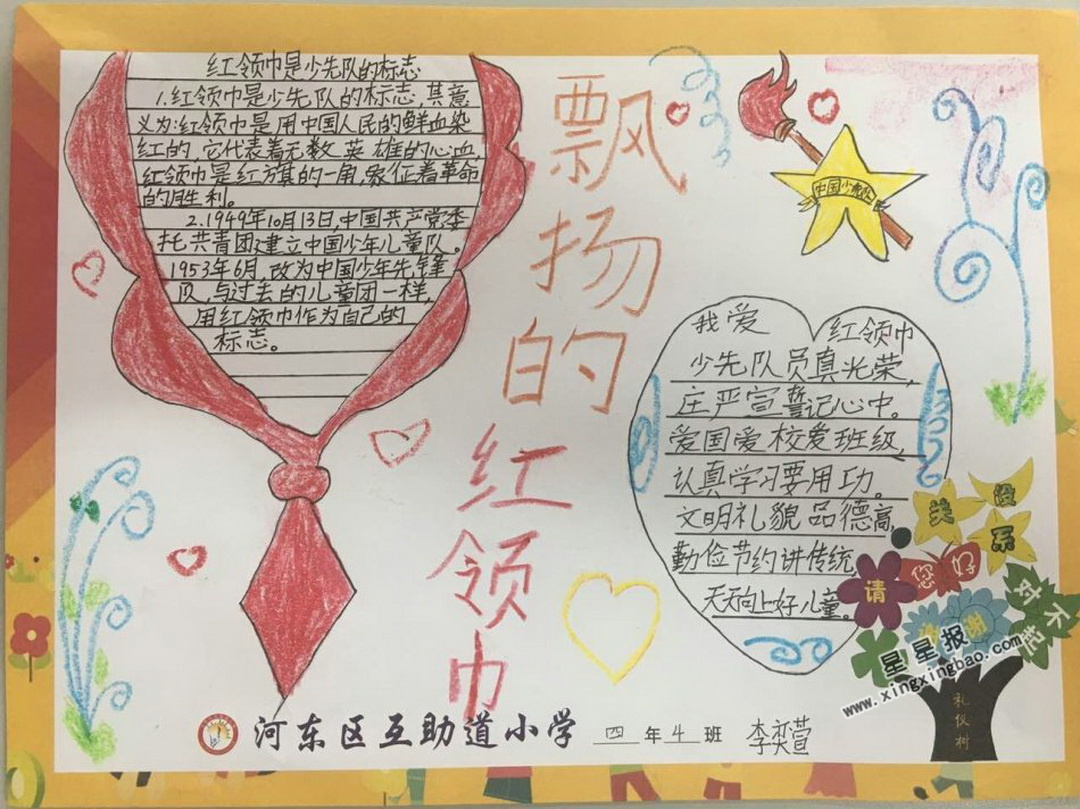 红领巾是少先队的标志
1.红领巾是少先队的标志,其意
义为:红领巾是用中国人民的鲜血染
红的,它代表着无数英雄的心血,
红领巾是红旗的一角,象征着革命
的胜利。
2.1949年10月13日,中国共产党委
托共青团建立中国少年儿童队。
1953年6月,改为中国少年先锋
队,与过去的儿童团一样,
用红领巾作为自己的
标志。
飘扬的红领巾
中国少先队
我爱红领巾
少先队员真光荣,
庄严宣誓记心中。
爱国爱校爱班级,
认真学习要用功。
文明礼貌品德高,
勤俭节约讲传统,
天天向上好儿童。
没关系
您好
请
对不起
谢谢
礼仪树
星星报
www.xingxingbao.com
河东区互助道小学 四年4班 李奕萱